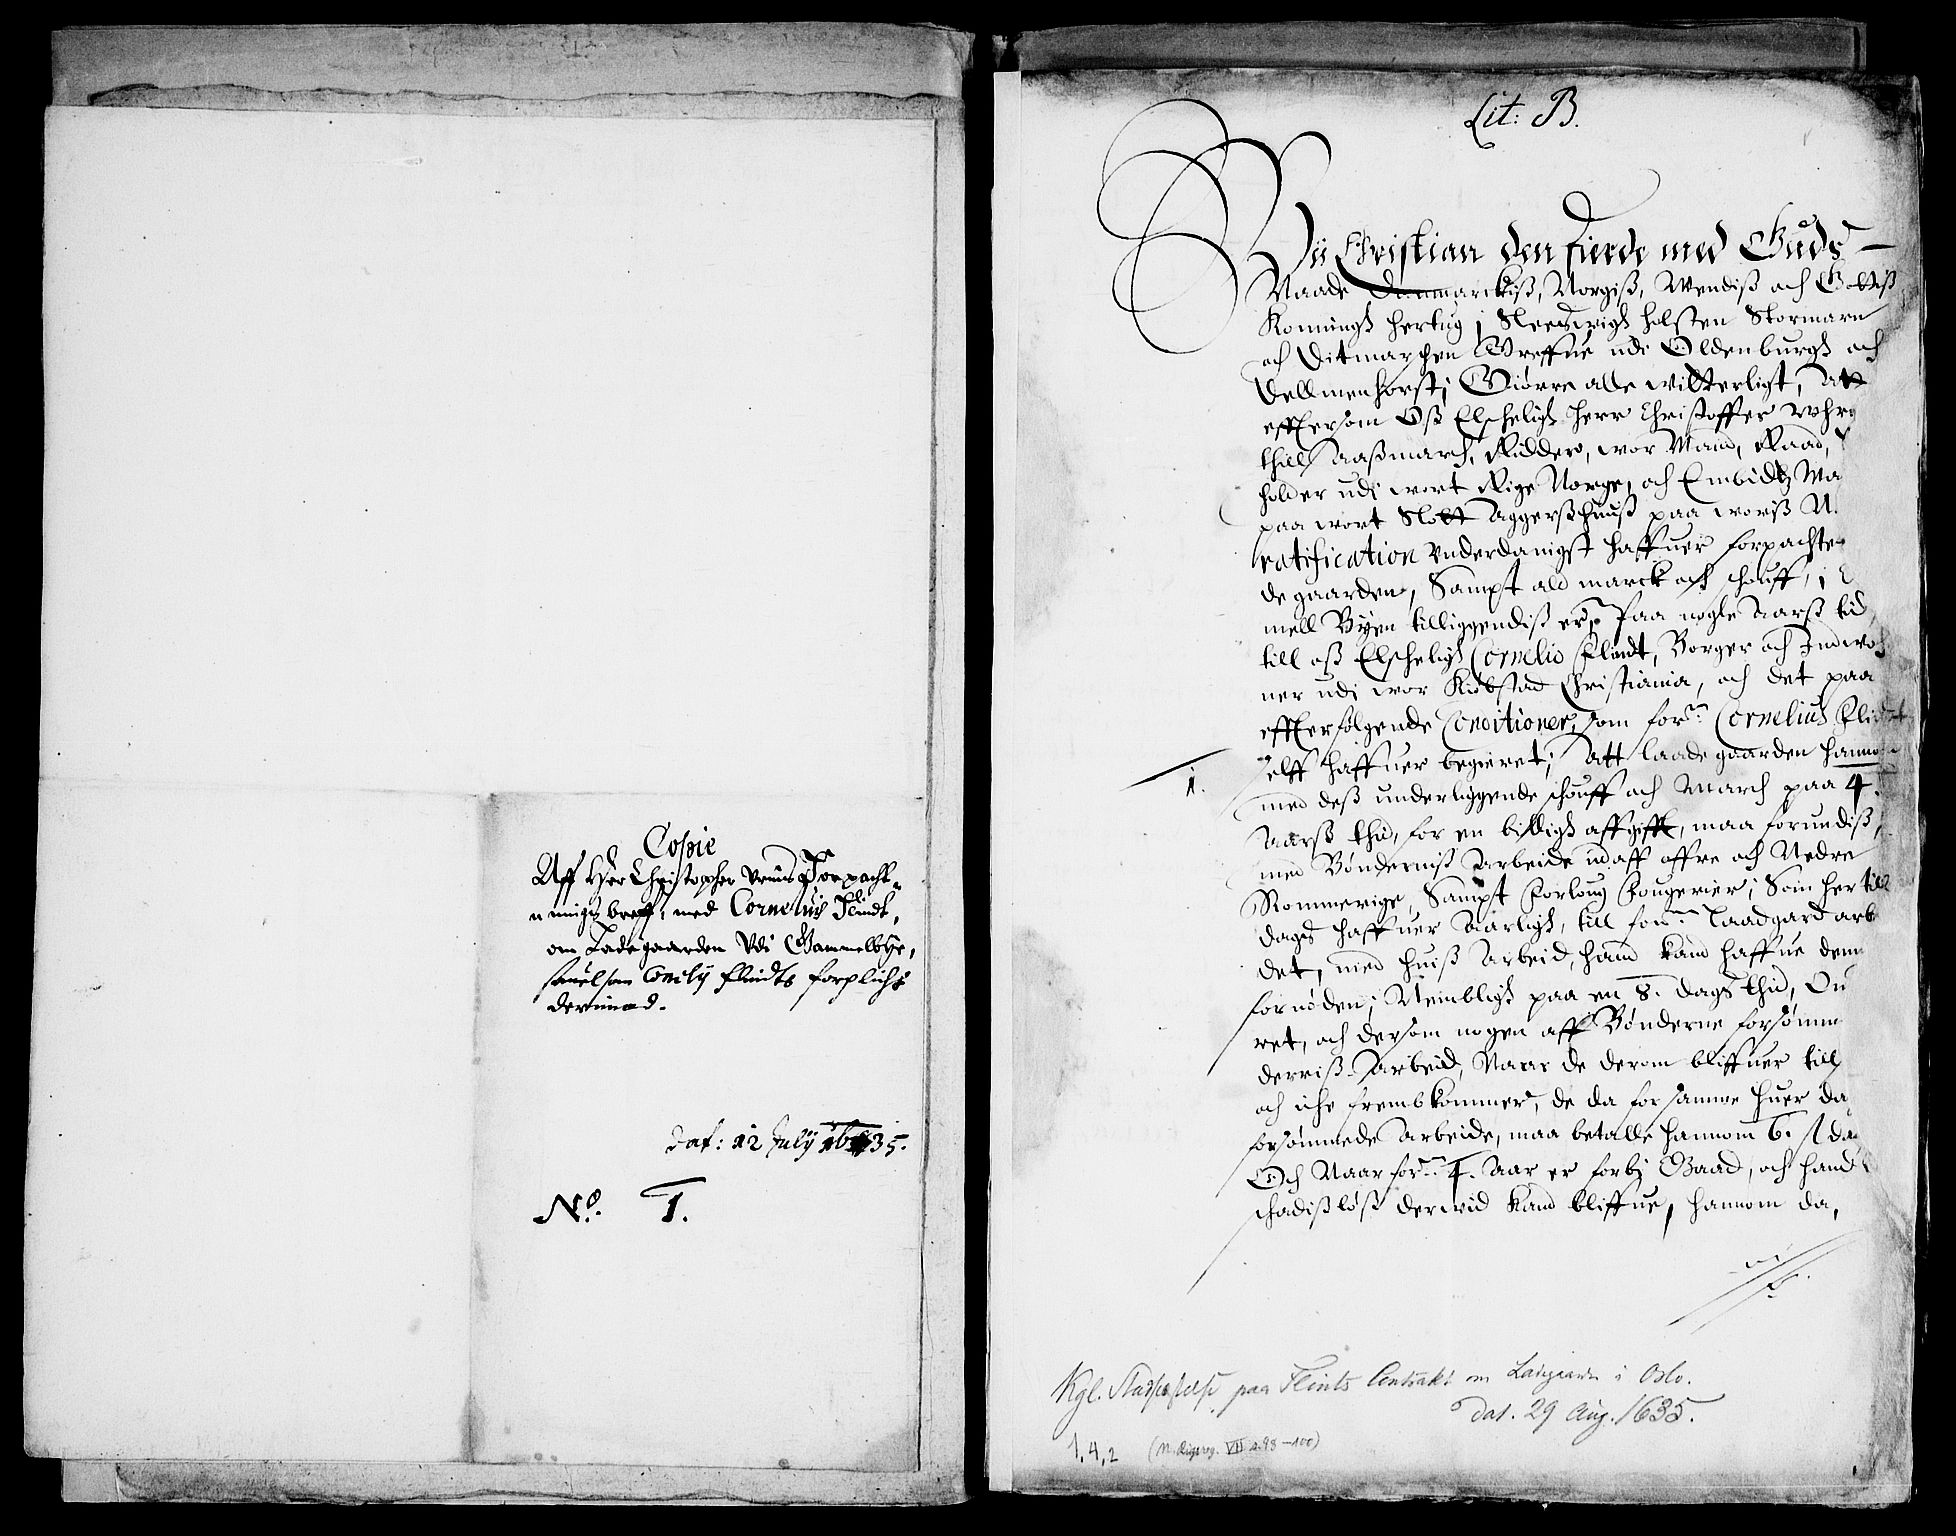 Copie
Aff Her Christopher Urnis Forpacht-
ningsbreff, med Cornelius Flindt,
om Ladegaarden Udi Gammelbye,
sauelsom Cornely Flindts forplicht
dermod.
Dat: 12 July 1635.
No. 1.
Lit: B.
Wii Christian den Fierde med Guds
Naade Danmarckiß, Norgiß, Wendiß och Gottiß
Konningh hertug i Sleeswigh holsten Stormarn
och Ditmarschen Greffue udi Oldenburgh och
Dellmenhorst; Giørre alle witterligt, Att
efftersom Oß Elschelig Herr Christoffer Whrn
thill Aaßmarch, Ridder, wor Mand, Raad,
holder udi wort Rige Norge, och Embidtz Ma
paa wort Slott Aggerßhuuß paa woriß N.
ratification underdanigst haffuer forpachte
de gaarden, Sampt ald marck och schouff, i
mell Byen tilliggendiß er, Paa nogle Aarß tid,
till oß Elschelig Cornelio Flindt, Borger och Indwoh
ner udi wor Kiøbstad Christiania, och det paa
effterfølgende Conditioner, som for.ne Cornelius Flindt
self haffuer begieret; Att laadegaarden hannom
1.
med deß underliggende schouff och March paa 4.
Aarß thid, for en billigh affgifft, maa forundiß,
med Bønderniß Arbeide udaff offre och Nedre
Rommerige, Sampt Forloug Fougerier; Som her till
dags haffuer Aarligh, till for.ne Laadgard arb
det, med huiß Arbeid, hand kand haffue denn
fornøden; Nembligh paa en 8. dags thid, Om
ret, och dersom nogen aff Bønderne forsømm
derriß Arbeid, Naar de derom bliffuer till
och iche frembkommer, de da for samme huer da
forsømmede Arbeide, maa betalle hannom 6. ß da
Och Naar for.ne 4. Aar er forbj Gaad, och hand
schadißløß derwid kand bliffue, hannom da,
Kgl. Stadfæstelse paa Flints Contrakt om Ladegaarden i Oslo.
dat. 29 Aug. 1635.
1,4,2 (N. Rigsreg. VII s. 98-100)